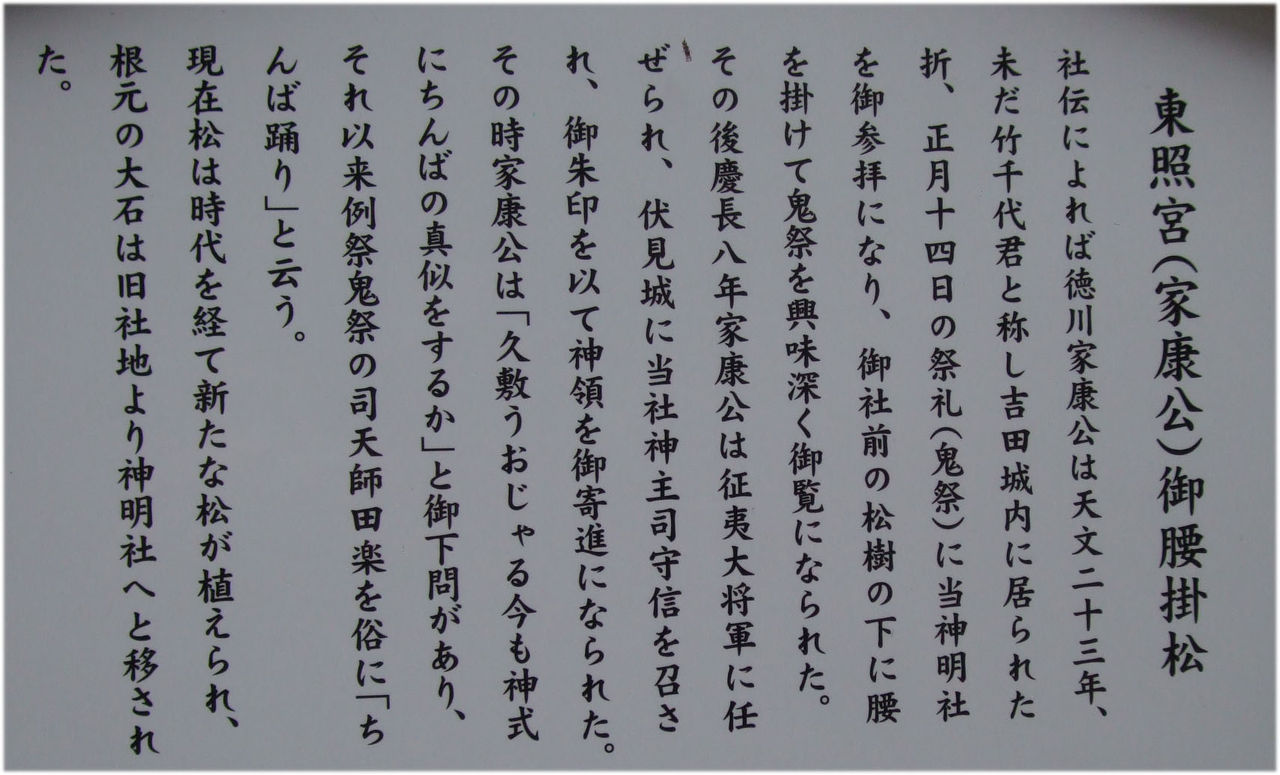 東照宮(家康公)御腰掛松
社伝によれば徳川家康公は天文二十三年、
未だ竹千代君と称し吉田城内に居られた
折、正月十四日の祭礼(鬼祭)に当神明社
を御参拝になり、御社前の松樹の下に腰
を掛けて鬼祭を興味深く御覧になられた。
その後慶長八年家康公は征夷大将軍に任
ぜられ、伏見城に当社神主司守信を召さ
れ、御朱印を以て神領を御寄進になられた。
その時家康公は「久敷うおじゃる今も神式
にちんばの真似をするか」と御下問があり、
それ以来例祭鬼祭の司天師田楽を俗に「ち
んば踊り」と云う。
現在松は時代を経て新たな松が植えられ、
根元の大石は旧社地より神明社へと移され
た。